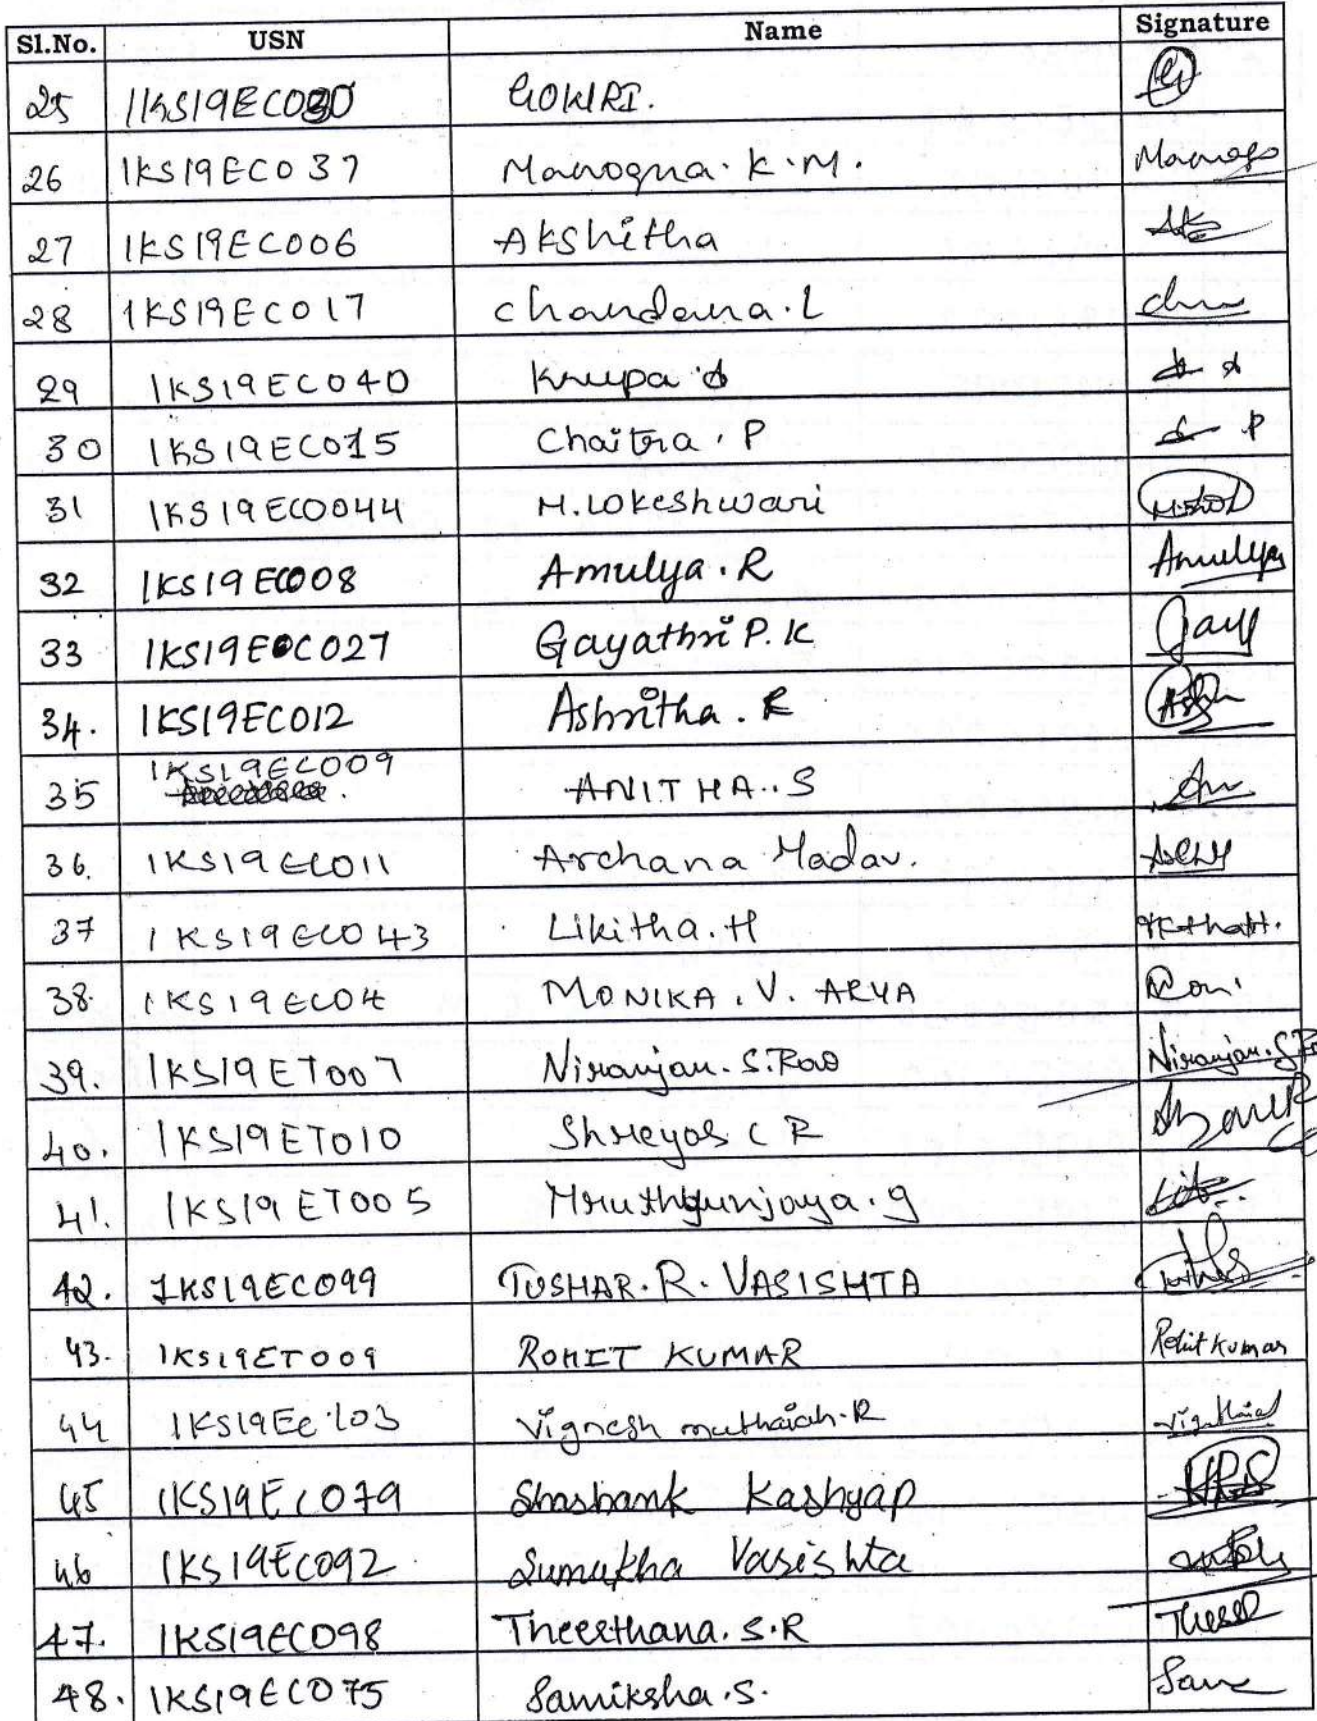 Sl.No. USN Name Signature
25 1KS19EC030 GOWRI.
26 1KS19EC037 Manogna. K.M. Manogna
27 1KS19EC006 Akshitha
28 1KS19EC017 Chandana.L
29 1KS19EC040 Krupa
30 1KS19EC015 Chaitra.P P
31 1KS19EC0044 M.Lokeshwari
32 1KS19EC008 Amulya.R Amulya
33 1KS19EC027 Gayathri P.K
34. 1KS19EC012 Ashritha.R
35 1KS19EC009 ANITHA..S
36. 1KS19EC011 Archana Yadav.
37 1KS19EC043 Likitha.H
38. 1KS19EC04 MONIKA.V. ARYA
39. 1KS19ET007 Niranjan.S.Rao Niranjan.S.
40. 1KS19ET010 Shreyas C R
41. 1KS19ET005 Mruthyunjaya.g
42. 1KS19EC099 TUSHAR.R.VASISHTA
43. 1KS19ET009 ROHIT KUMAR Rohit Kumar
44 1KS19EC103 Vignesh muthaiah.R
45 1KS19EC079 Shashank Kashyap
46 1KS19EC092 Sumukha Vasishta
47. 1KS19EC098 Theerthana.S.R
48. 1KS19EC075 Samiksha.S.